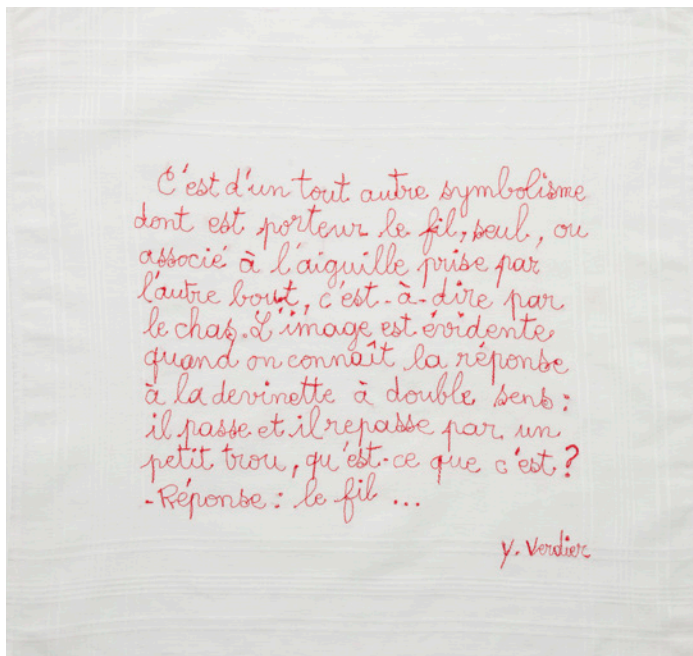 C'est d'un tout autre symbolisme
dont est porteur le fil, seul, ou
associé à l'aiguille prise par
l'autre bout, c'est-à-dire par
le chas. L'image est évidente
quand on connaît la réponse
à la devinette à double sens :
il passe et il repasse par un
petit trou, qu'est-ce que c'est ?
- Réponse : le fil ...
Y. Verdier